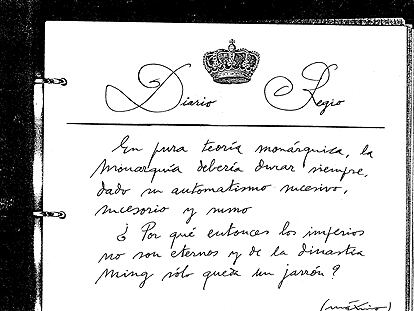 Diario Regio
En pura teoría monárquica, la
monarquía debería durar siempre,
dado su automatismo sucesivo,
sucesorio y sumo
¿Por qué entonces los imperios
no son eternos y de la dinastía
Ming sólo queda un jarrón?
(máximo)